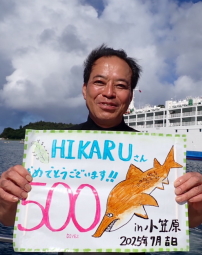 HIKARUさん
おめでとうございます!!
500
in 小笠原
2025年7月吉日